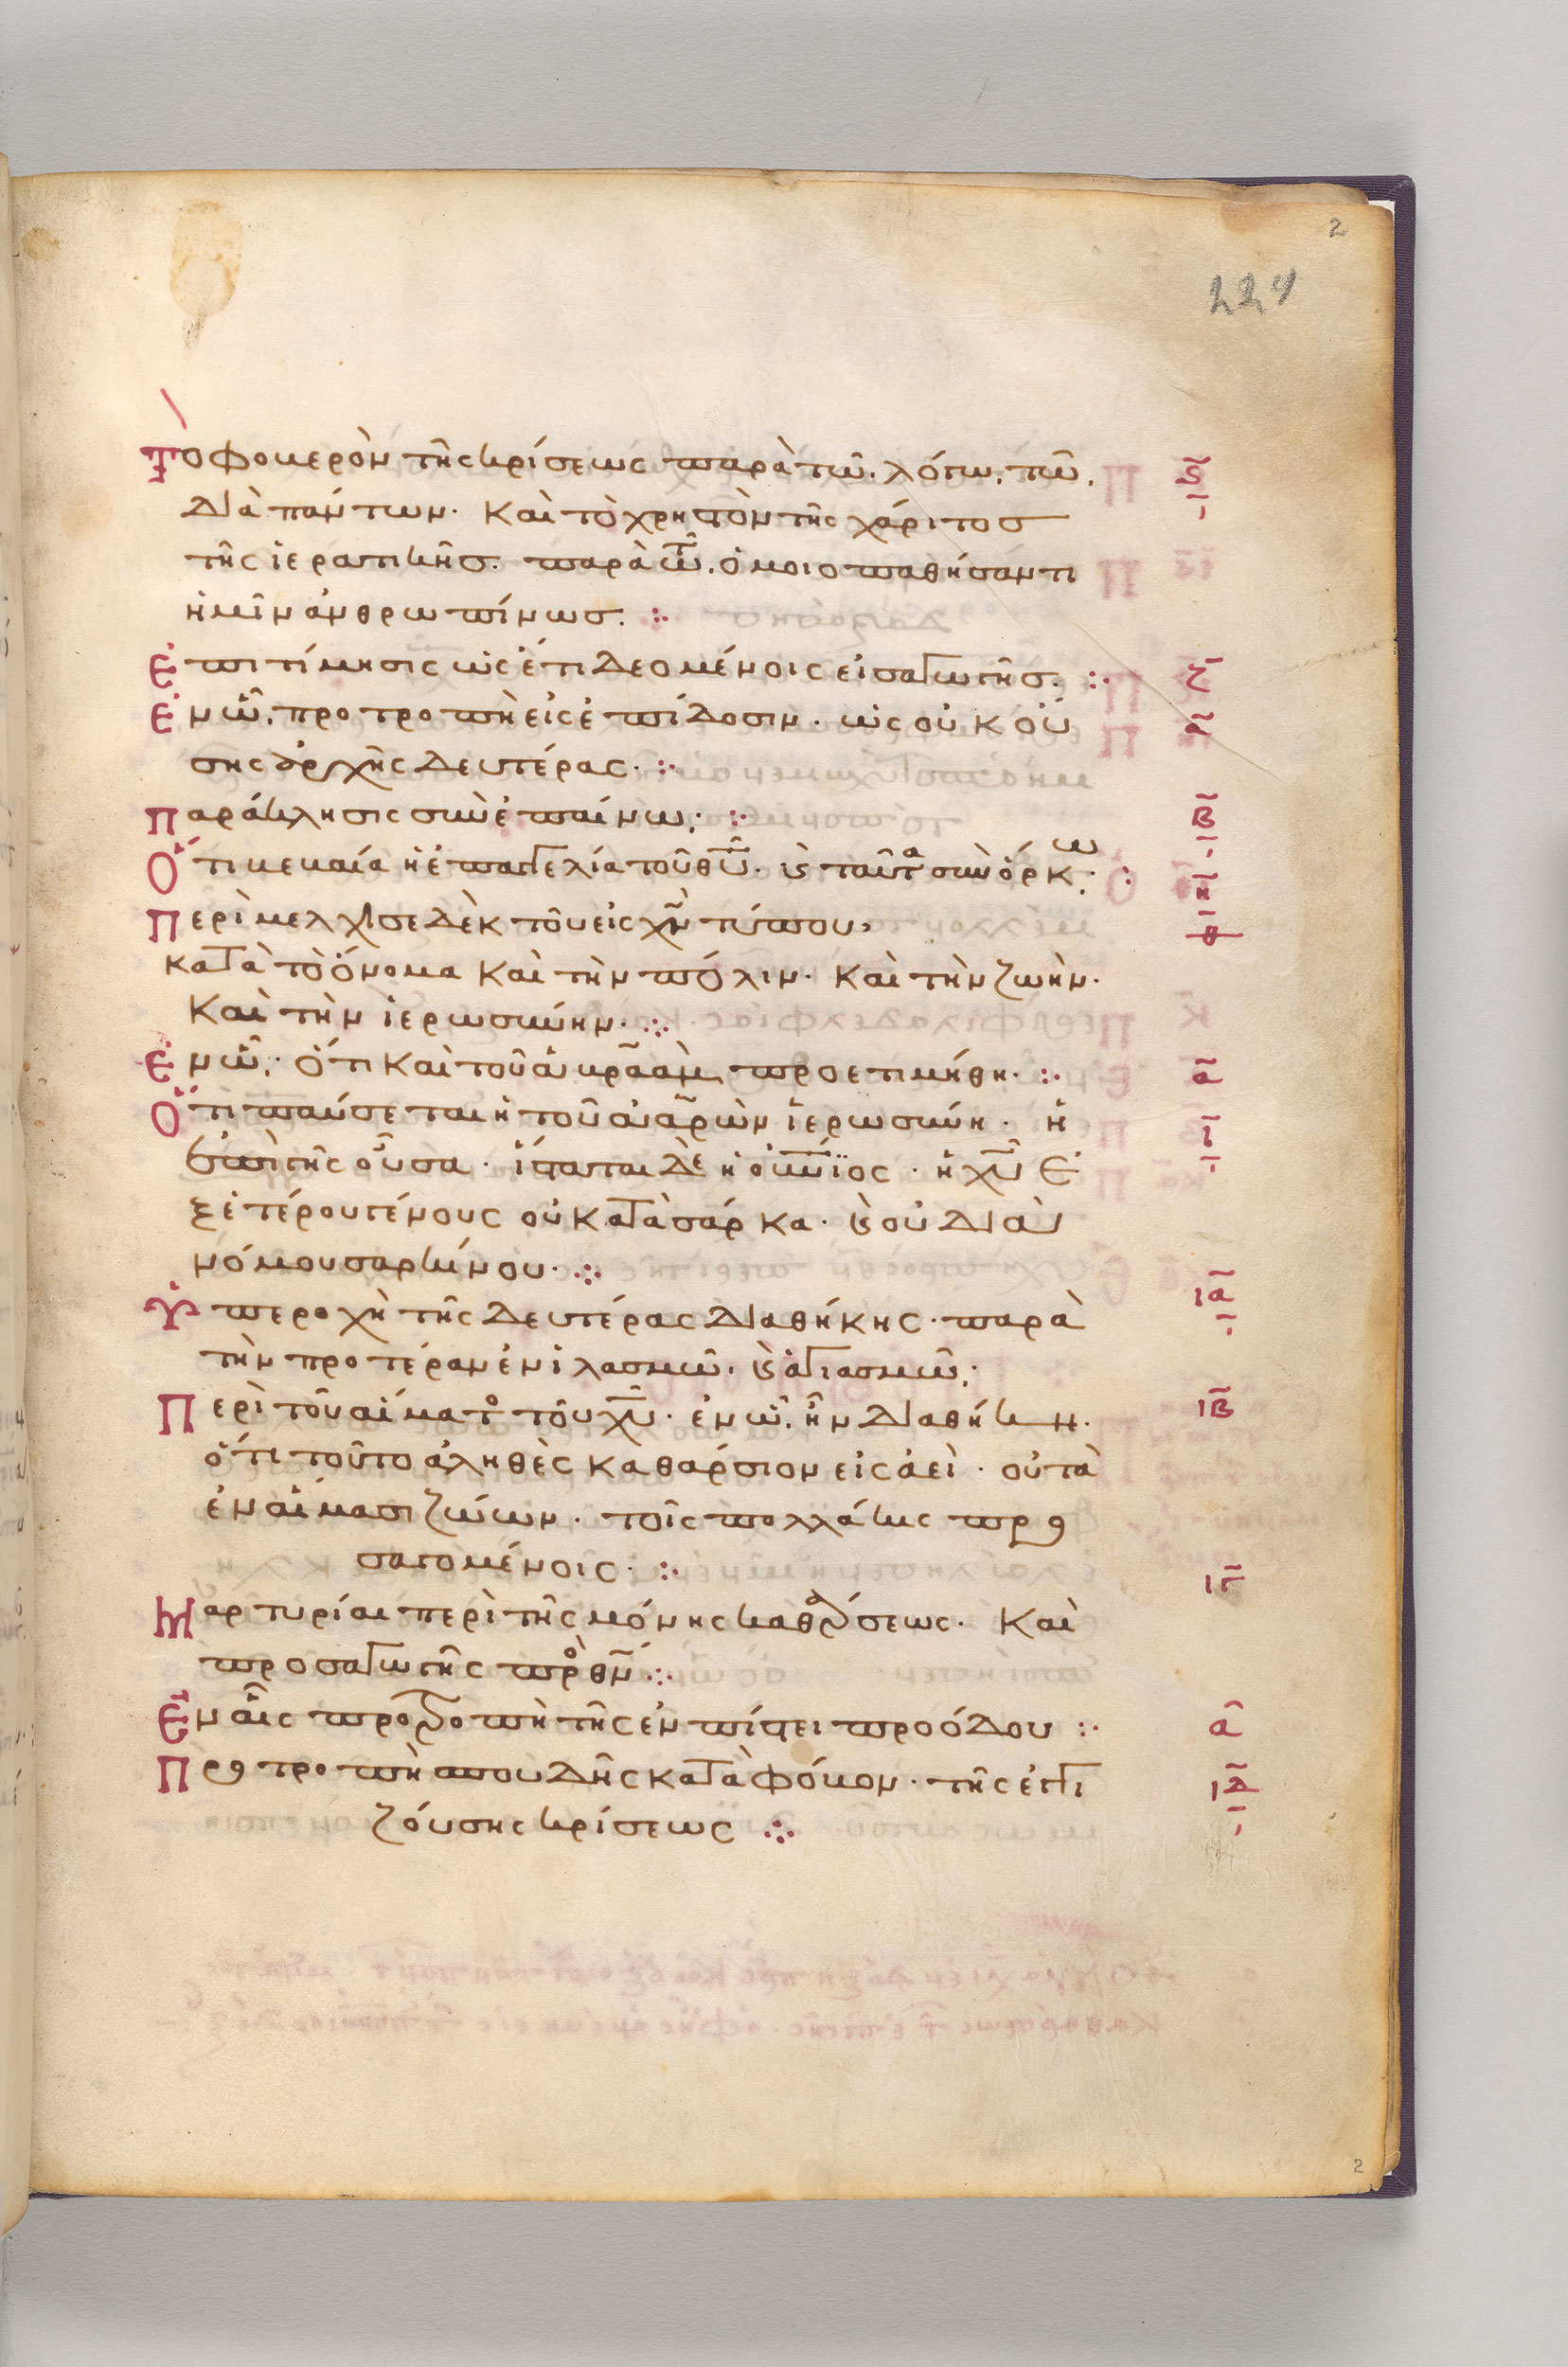 2
224
Τὸ φοβερὸν τῆς κρίσεως παρὰ τῶ λόγω τῶ ϛ̄
διὰ πάντων· καὶ τὸ χρηστὸν τῆς χάριτοσ
τῆς ἱερατικῆσ· παρὰ τῶ ὁμοιοπαθήσαντι
ἡμῖν ἀνθρωπίνωσ ⁘
Ἐπιτίμησις ὡς ἔτι δεομένοις εἰσαγωγῆσ ⁘ ζ̄
Ἐν ὧ προτροπὴ εἰς ἐπίδοσιν· ὡς οὐκ οὔ ᾱ
σης ἀρχῆς δευτέρας· ⁘
Παράκλησις σὺν ἐπαίνω· ⁘ β̄
Ὅτι βεβαία ἡ ἐπαγγελία τοῦ θῡ· κ(αὶ) ταῦτα σὺν ὅρκω· ⁘ η̄
Περὶ μελχισεδὲκ τοῦ εἰς χν̄ τύπου, θ̄
κατὰ τὸ ὄνομα καὶ τὴν πόλιν· καὶ τὴν ζωὴν·
καὶ τὴν ἱερωσύνην· ⁘
Ἐν ὧ· ὅτι καὶ τοῦ ἀβραὰμ προετιμήθη· ⁘ ᾱ
Ὅτι παύσεται ἡ τοῦ ἀαρὼν ἱερωσύνη· ἡ ῑ
ἐπὶ γῆς οὖσα· ἵσταται δὲ ἡ οὐν̄ϊος· ἡ χῡ ἐ
ξ ἑτέρου γένους οὐ κατὰ σάρκα· κ(αὶ) οὐ διὰ
νόμου σαρκίνου· ⁘
Ὑπεροχὴ τῆς δευτέρας διαθήκης· παρὰ ιᾱ
τὴν προτέραν ἐν ἱλασμῶ· κ(αὶ) ἁγιασμῶ·
Περὶ τοῦ αἵματο τοῦ χῡ· ἐν ὧ ἡ ν διαθήκη· ιβ̄
ὅτι τοῦτο ἀληθὲς καθάρσιον εἰς ἀεὶ· οὐ τὰ
ἐν αἵμασι ζώων· τοῖς πολλάκις προ
σαγομένοις· ⁘
Μαρτυρίαι περὶ τῆς μόνης καθάρσεως· καὶ ιγ̄
προσαγωγῆς πρὸ θν̄ ⁘
Ἐν αἷς προτροπὴ τῆς ἐν πίστει προόδου ⁘ ᾱ
Προτροπὴ σπουδῆς κατὰ φόβον· τῆς ἐγγι ιδ̄
ζούσης κρίσεως ⁘
2